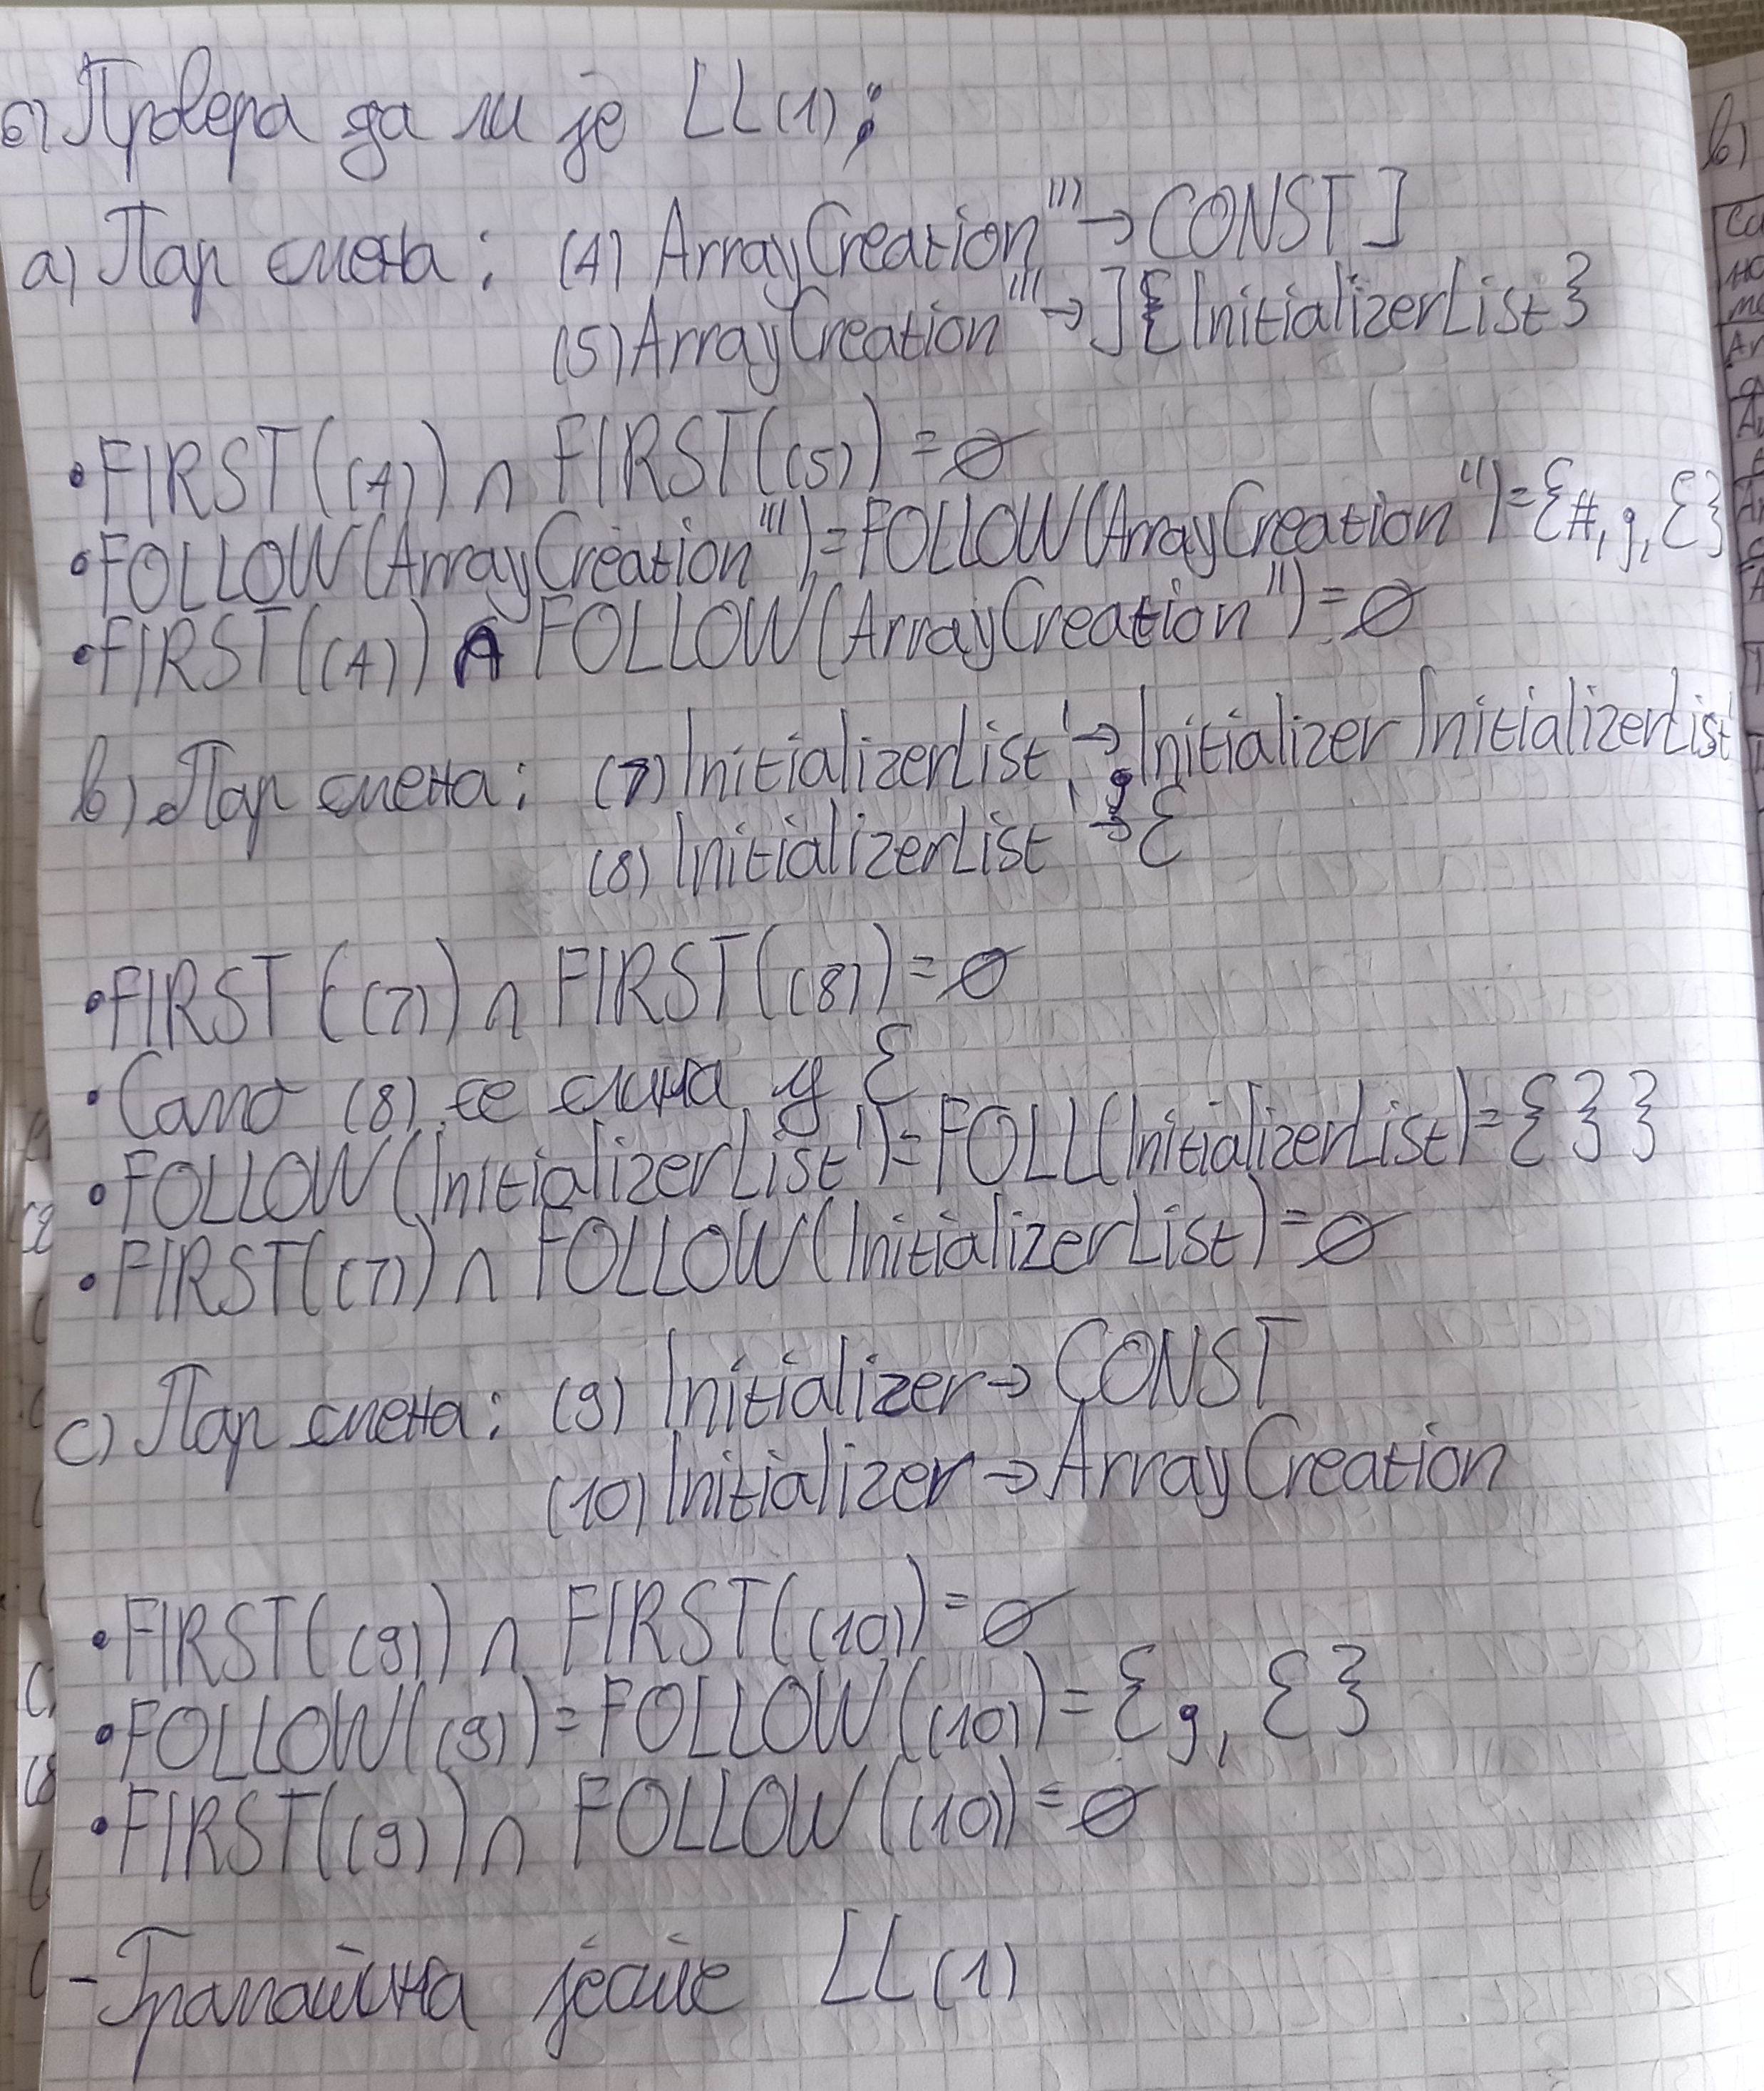 б) Провера да ли је LL(1):
a) Пар смена: (4) ArrayCreation''' → CONST ]
(5) ArrayCreation''' → ]{ InitializerList }
• FIRST((4)) ∩ FIRST((5)) = ∅
• FOLLOW(ArrayCreation''') = FOLLOW(ArrayCreation'') = {#, g, ε}
• FIRST((4)) ∩ FOLLOW(ArrayCreation'') = ∅
b) Пар смена: (7) InitializerList' → , Initializer InitializerList'
(8) InitializerList' → ε
• FIRST((7)) ∩ FIRST((8)) = ∅
• Само (8) се слика у ε
• FOLLOW(InitializerList') = FOLL(InitializerList) = { } }
• FIRST((7)) ∩ FOLLOW(InitializerList) = ∅
c) Пар смена: (9) Initializer → CONST
(10) Initializer → ArrayCreation
• FIRST((9)) ∩ FIRST((10)) = ∅
• FOLLOW((9)) = FOLLOW((10)) = {g, ε}
• FIRST((9)) ∩ FOLLOW((10)) = ∅
- Граматика јесте LL(1)
в)